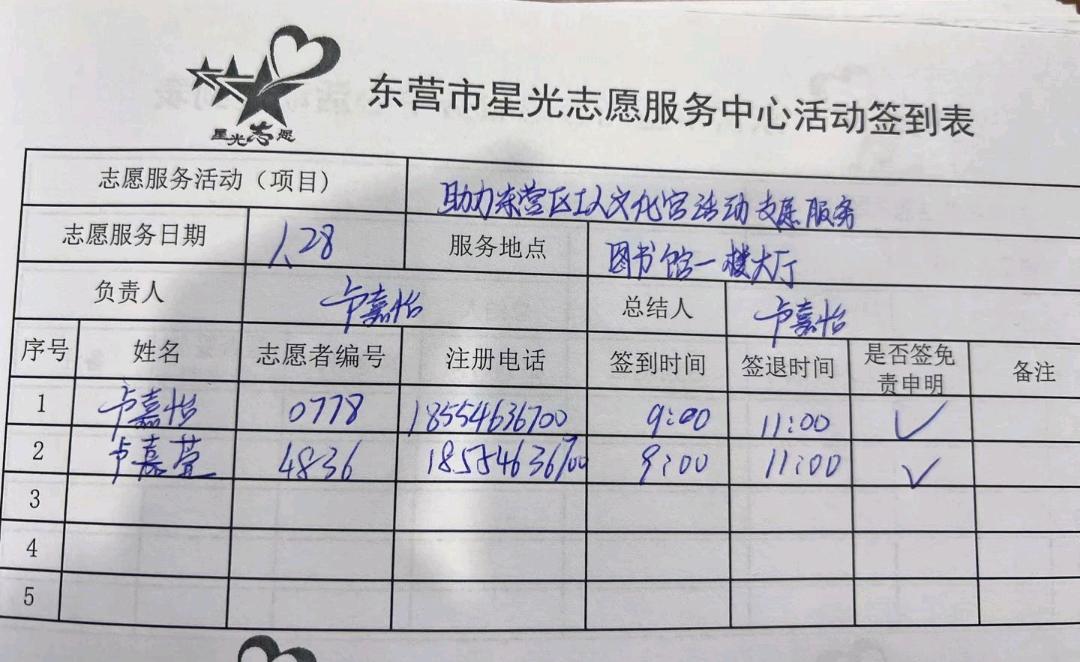 星光志愿
东营市星光志愿服务中心活动签到表
志愿服务活动（项目） 助力东营区工人文化宫活动志愿服务
志愿服务日期 1.28 服务地点 图书馆一楼大厅
负责人 卢嘉怡 总结人 卢嘉怡
序号 姓名 志愿者编号 注册电话 签到时间 签退时间 是否签免责申明 备注
1 卢嘉怡 0778 18554636700 9:00 11:00 ✓
2 卢嘉萱 4836 18554636700 9:00 11:00 ✓
3
4
5